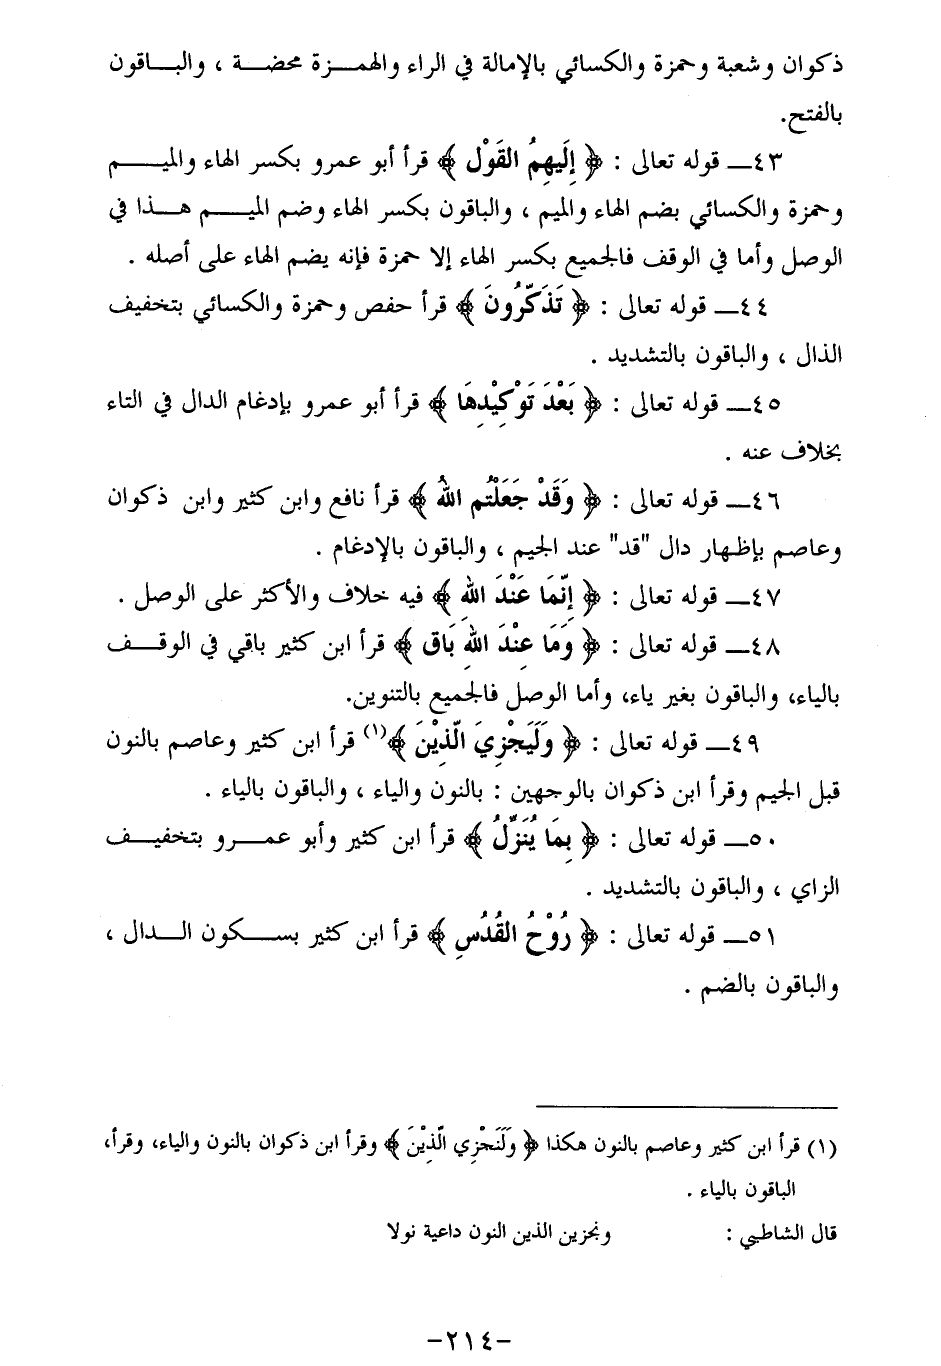 ذكوان وشعبة وحمزة والكسائي بالإمالة في الراء والهمزة محضة ، والباقون
بالفتح.
٤٣ــ قوله تعالى : ﴿ إِلَيهِمُ القَوْل ﴾ قرأ أبو عمرو بكسر الهاء والميم
وحمزة والكسائي بضم الهاء والميم ، والباقون بكسر الهاء وضم الميم هذا في
الوصل وأما في الوقف فالجميع بكسر الهاء إلا حمزة فإنه يضم الهاء على أصله .
٤٤ــ قوله تعالى : ﴿ تَذَكَّرُونَ ﴾ قرأ حفص وحمزة والكسائي بتخفيف
الذال ، والباقون بالتشديد .
٤٥ــ قوله تعالى : ﴿ بَعْدَ تَوْكِيْدِهَا ﴾ قرأ أبو عمرو بإدغام الدال في التاء
بخلاف عنه .
٤٦ــ قوله تعالى : ﴿ وَقَدْ جَعَلْتُم اللهُ ﴾ قرأ نافع وابن كثير وابن ذكوان
وعاصم بإظهار دال "قد" عند الجيم ، والباقون بالإدغام .
٤٧ــ قوله تعالى : ﴿ إِنَّمَا عَنْدَ اللهِ ﴾ فيه خلاف والأكثر على الوصل .
٤٨ــ قوله تعالى : ﴿ وَمَا عِنْدَ اللهِ بَاق ﴾ قرأ ابن كثير باقي في الوقف
بالياء، والباقون بغير ياء، وأما الوصل فالجميع بالتنوين.
٤٩ــ قوله تعالى : ﴿ وَلَيَجْزِيَ الَّذِيْنَ ﴾(١) قرأ ابن كثير وعاصم بالنون
قبل الجيم وقرأ ابن ذكوان بالوجهين : بالنون والياء ، والباقون بالياء .
٥٠ــ قوله تعالى : ﴿ بِمَا يُنَزِّلُ ﴾ قرأ ابن كثير وأبو عمرو بتخفيف
الزاي ، والباقون بالتشديد .
٥١ــ قوله تعالى : ﴿ رُوْحُ القُدُسِ ﴾ قرأ ابن كثير بسكون الدال ،
والباقون بالضم .
(١) قرأ ابن كثير وعاصم بالنون هكذا ﴿ وَلَنَجْزِي الَّذِيْنَ ﴾ وقرأ ابن ذكوان بالنون والياء، وقرأ،
الباقون بالياء .
قال الشاطبي : ونجزين الذين النون داعية نولا
-٢١٤-